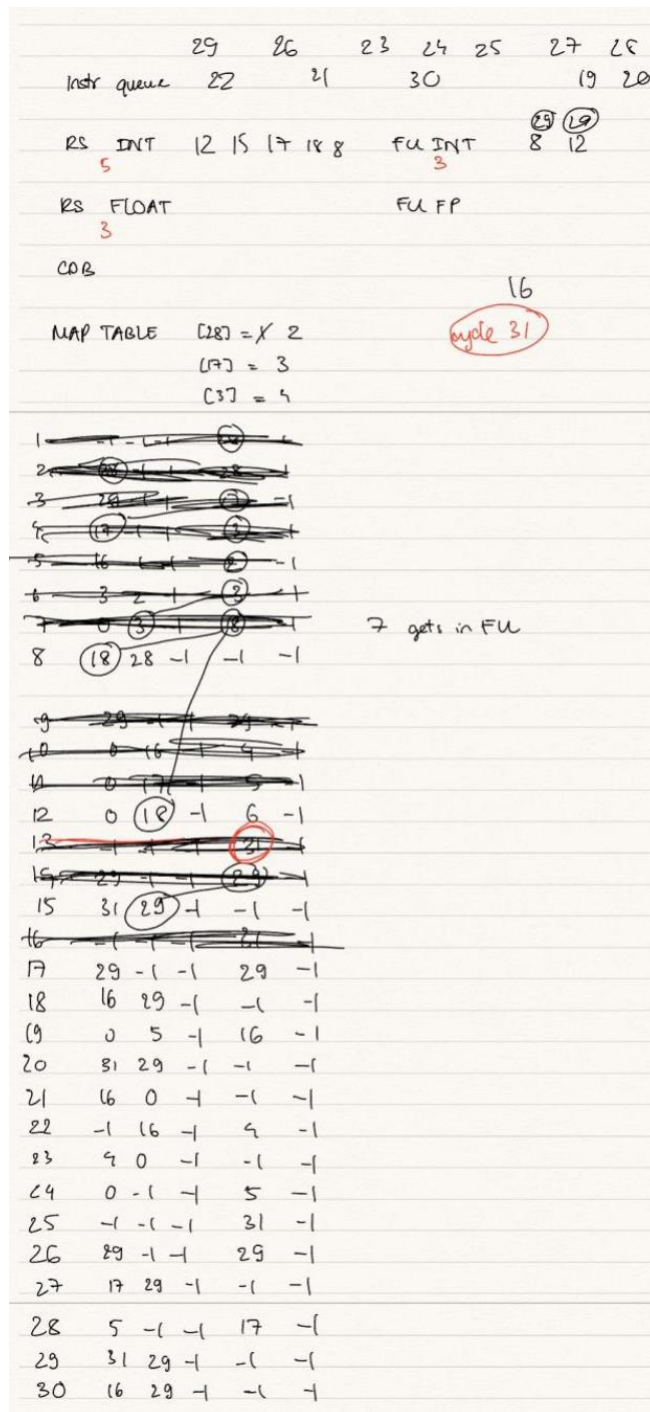 29 26 23 24 25 27 28
Instr queue 22 21 30 19 20
(29) (29)
RS INT 12 15 17 18 8 FU INT 8 12
5 3
RS FLOAT FU FP
3
CDB
16
MAP TABLE [28] = 2 cycle 31
[17] = 3
[3] = 4
1 -1 -1 -1
2 28 -1 -1 28 -1
3 29 -1 -1 -1
4 17 -1 -1 3 -1
5 16 -1 -1 2 -1
6 3 2 -1 3 -1
7 0 3 -1 18 -1 7 gets in FU
8 18 28 -1 -1 -1
9 29 -1 -1 29 -1
10 0 16 -1 4 -1
11 0 17 -1 5 -1
12 0 18 -1 6 -1
13 -1 -1 -1 31 -1
14 29 -1 -1 29 -1
15 31 29 -1 -1 -1
16 -1 -1 -1 31 -1
17 29 -1 -1 29 -1
18 16 29 -1 -1 -1
19 0 5 -1 16 -1
20 31 29 -1 -1 -1
21 16 0 -1 -1 -1
22 -1 16 -1 4 -1
23 4 0 -1 -1 -1
24 0 -1 -1 5 -1
25 -1 -1 -1 31 -1
26 29 -1 -1 29 -1
27 17 29 -1 -1 -1
28 5 -1 -1 17 -1
29 31 29 -1 -1 -1
30 16 29 -1 -1 -1